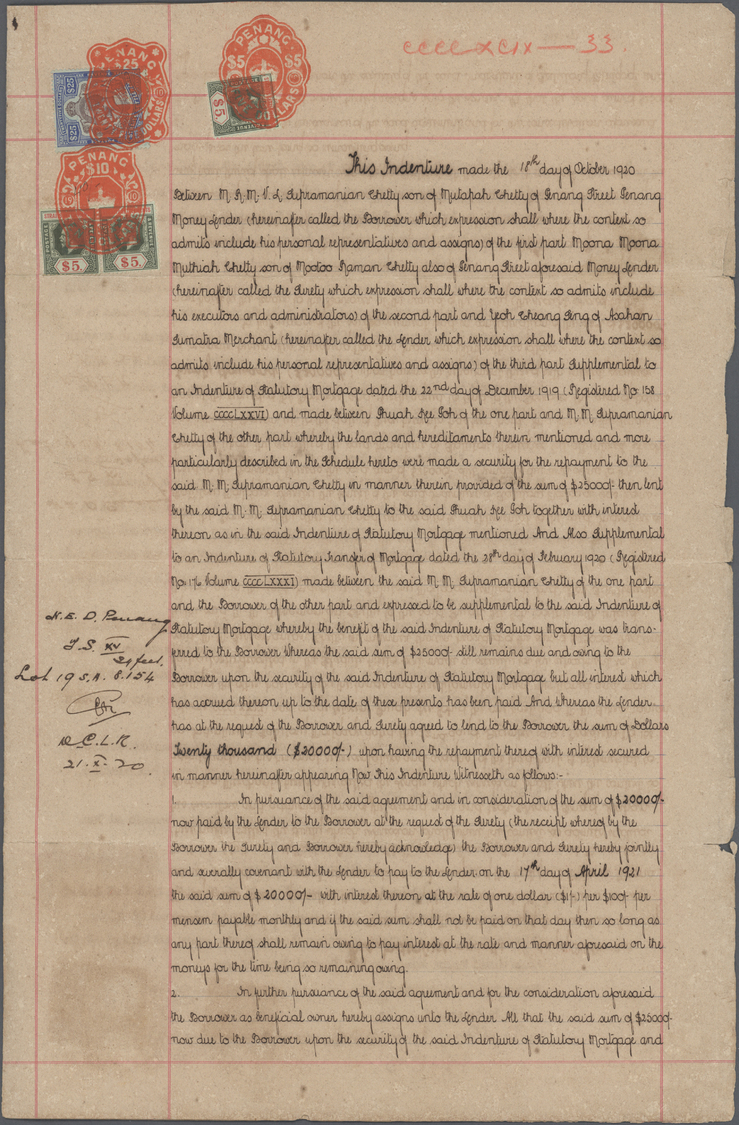 CCCCXCIX — 33.
PENANG
$25
DOLLARS
$25 $25
PENANG
$5 $5
DOLLARS
$5
REVENUE
PENANG
$10
$5 $5
This Indenture made the 18th day of October 1920
Between M. R. M. V. L. Supramanian Chetty son of Mutapah Chetty of Penang Street Penang
Money Lender (hereinafter called the Borrower which expression shall where the context so
admits include his personal representatives and assigns) of the first part Moona Moona
Muthiah Chetty son of Mootoo Raman Chetty also of Penang Street aforesaid Money Lender
(hereinafter called the Surety which expression shall where the context so admits include
his executors and administrators) of the second part and Yeoh Cheang Seng of Asahan
Sumatra Merchant (hereinafter called the Lender which expression shall where the context so
admits include his personal representatives and assigns) of the third part Supplemental to
an Indenture of Statutory Mortgage dated the 22nd day of December 1919 (Registered No. 158
Volume CCCCLXXVI) and made between Phuah See Goh of the one part and M. M. Supramanian
Chetty of the other part whereby the lands and hereditaments therein mentioned and more
particularly described in the Schedule hereto were made a security for the repayment to the
said M. M. Supramanian Chetty in manner therein provided of the sum of $25000/- then lent
by the said M. M. Supramanian Chetty to the said Phuah See Goh together with interest
thereon as in the said Indenture of Statutory Mortgage mentioned And Also Supplemental
to an Indenture of Statutory Transfer of Mortgage dated the 28th day of February 1920 (Registered
No. 176 Volume CCCCLXXXI) made between the said M. M. Supramanian Chetty of the one part
and the Borrower of the other part and expressed to be supplemental to the said Indenture of
Statutory Mortgage whereby the benefit of the said Indenture of Statutory Mortgage was trans-
ferred to the Borrower Whereas the said sum of $25000/- still remains due and owing to the
Borrower upon the security of the said Indenture of Statutory Mortgage but all interest which
has accrued thereon up to the date of these presents has been paid And Whereas the Lender
has at the request of the Borrower and Surety agreed to lend to the Borrower the sum of Dollars
Twenty thousand ($20000/-) upon having the repayment thereof with interest secured
in manner hereinafter appearing Now This Indenture Witnesseth as follows:-
1. In pursuance of the said agreement and in consideration of the sum of $20000/-
now paid by the Lender to the Borrower at the request of the Surety (the receipt whereof by the
Borrower the Surety and Borrower hereby acknowledge) the Borrower and Surety hereby jointly
and severally covenant with the Lender to pay to the Lender on the 17th day of April 1921
the said sum of $20000/- with interest thereon at the rate of one dollar ($1/-) per $100/- per
mensem payable monthly and if the said sum shall not be paid on that day then so long as
any part thereof shall remain owing to pay interest at the rate and manner aforesaid on the
moneys for the time being so remaining owing.
2. In further pursuance of the said agreement and for the consideration aforesaid
the Borrower as beneficial owner hereby assigns unto the Lender All that the said sum of $25000/-
now due to the Borrower upon the security of the said Indenture of Statutory Mortgage and
N. E. D. Penang
T.S. XV
Lot 19 S.A. 8.154
C.L.R.
21.X.20.